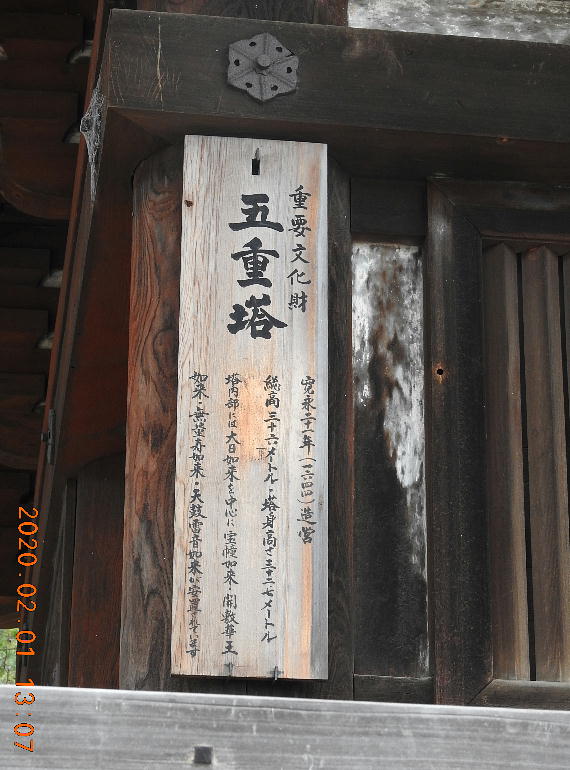 重要文化財
五重塔
寛永二十一年(一六四四)造営
総高三十六メートル・塔身高さ三十二・七メートル
塔内部には大日如来を中心に宝幢如来・開敷華王
如来・無量寿如来・天鼓雷音如来が安置されています
2020.02.01 13:07